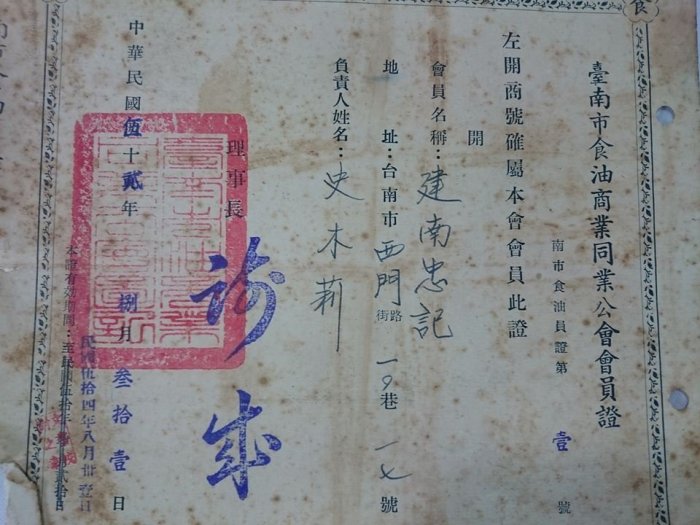 臺南市食油商業同業公會會員證
南市食油員證第壹號
左開商號確屬本會會員此證
開
會員名稱：建南忠記
地址：台南市西門街路一〇巷一七號
負責人姓名：史木莉
理事長
中華民國伍十貳年捌月叁拾壹日
本證有効期間
民國伍拾四年八月卅壹日